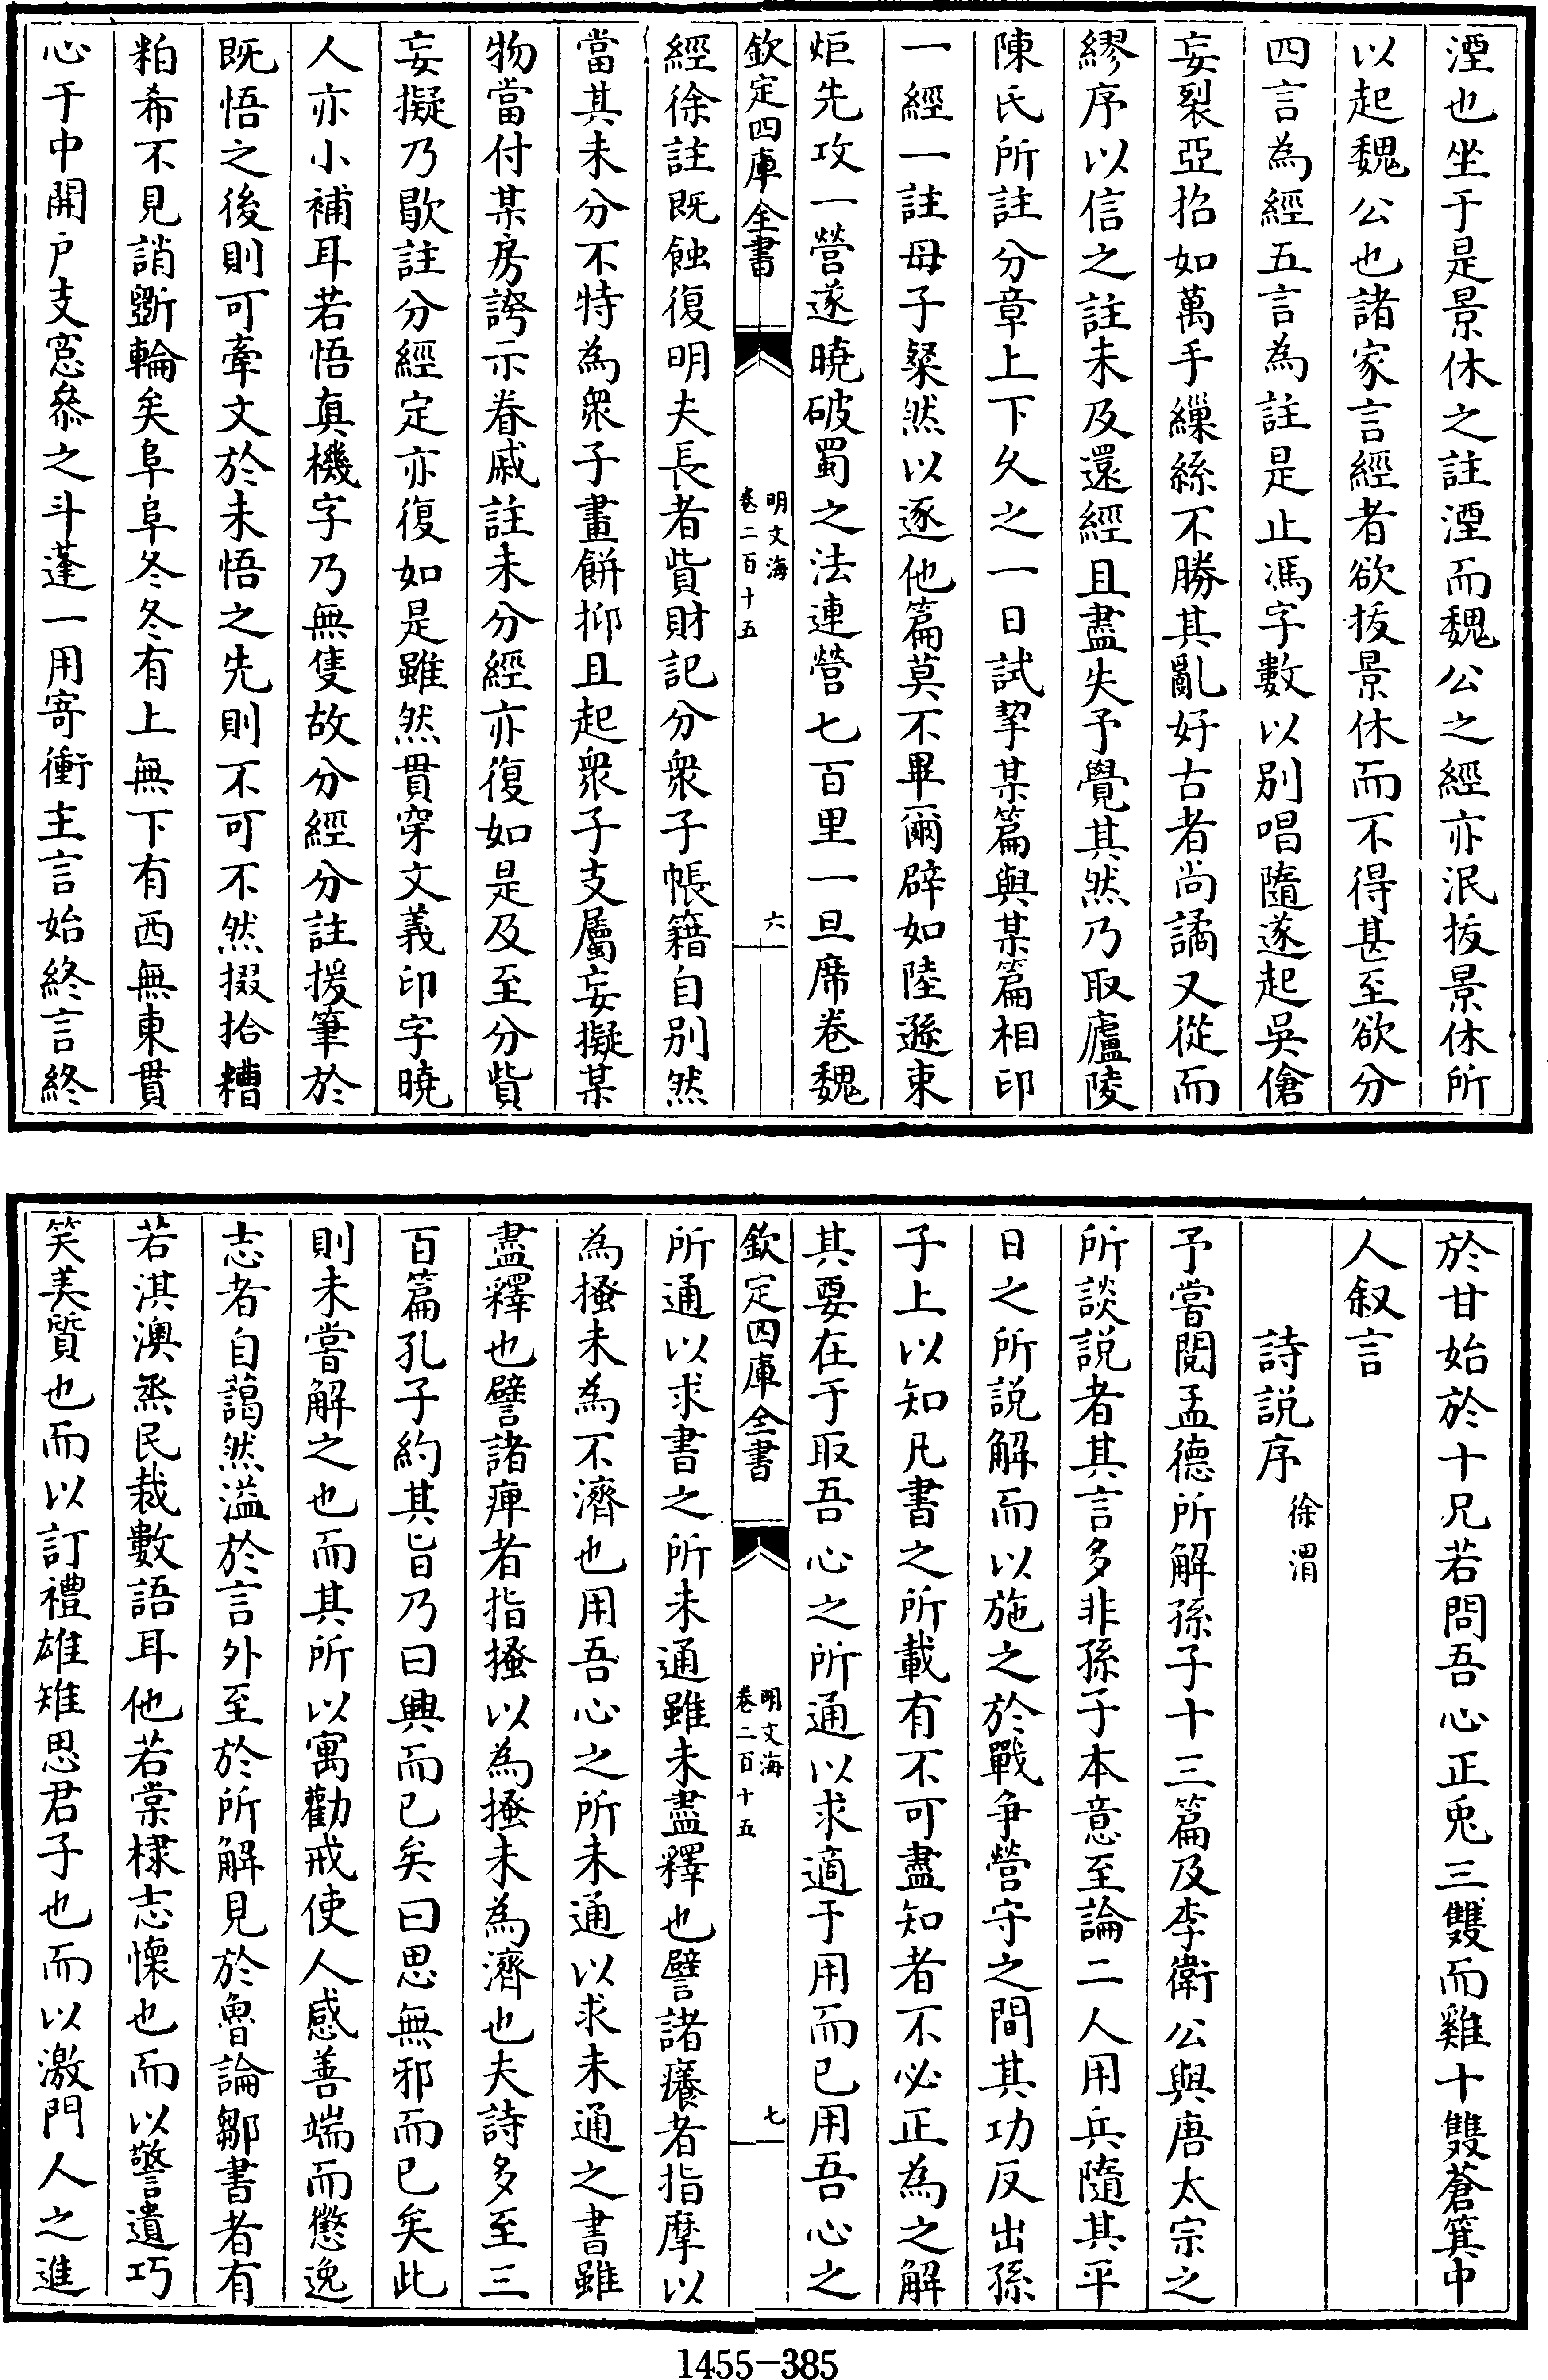 湮也坐于是景休之註湮而魏公之經亦泯拔景休所
以起魏公也諸家言經者欲拔景休而不得甚至欲分
四言為經五言為註是止馮字數以别唱隨遂起吳傖
妄裂亞招如萬手繅絲不勝其亂好古者尚譎又從而
繆序以信之註未及還經且盡失予覺其然乃取廬陵
陳氏所註分章上下久之一日試挈某篇與某篇相印
一經一註母子粲然以逐他篇莫不畢爾辟如陸遜束
炬先攻一營遂曉破蜀之法連營七百里一旦席卷魏
欽定四庫全書
明文海
卷二百十五
六
經徐註既蝕復明夫長者貲財記分衆子帳籍自别然
當其未分不特為衆子畫餅抑且起衆子支屬妄擬某
物當付某房誇示眷戚註未分經亦復如是及至分貲
妄擬乃歇註分經定亦復如是雖然貫穿文義印字曉
人亦小補耳若悟真機字乃無隻故分經分註援筆於
既悟之後則可牽文於未悟之先則不可不然掇拾糟
粕希不見誚斵輪矣阜阜冬冬有上無下有西無東貫
心于中開户支窓叅之斗蓬一用寄衝主言始終言終
於甘始於十兄若問吾心正兎三雙而雞十雙蒼箕中
人叙言
詩説序
徐渭
予嘗閱孟德所解孫子十三篇及李衛公與唐太宗之
所談説者其言多非孫子本意至論二人用兵隨其平
日之所説解而以施之於戰争營守之間其功反出孫
子上以知凡書之所載有不可盡知者不必正為之解
其要在于取吾心之所通以求適于用而已用吾心之
欽定四庫全書
明文海
卷二百十五
七
所通以求書之所未通雖未盡釋也譬諸癢者指摩以
為搔未為不濟也用吾心之所未通以求未通之書雖
盡釋也譬諸痺者指搔以為搔未為濟也夫詩多至三
百篇孔子約其旨乃曰興而已矣曰思無邪而已矣此
則未嘗解之也而其所以寓勸戒使人感善端而懲逸
志者自藹然溢於言外至於所解見於魯論鄒書者有
若淇澳烝民裁數語耳他若棠棣志懷也而以警遺巧
笑美質也而以訂禮雄雉思君子也而以激門人之進
1455-385